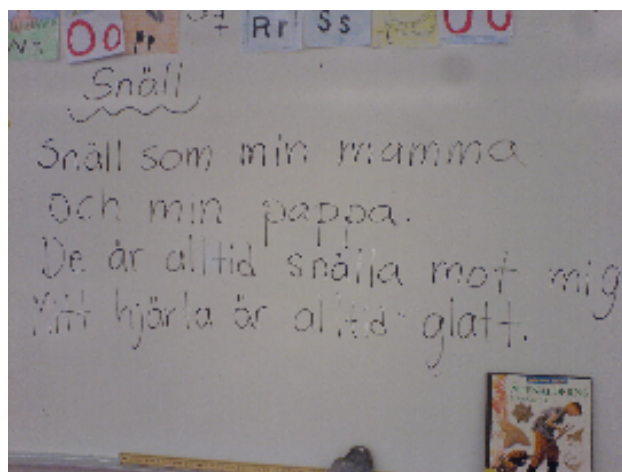 Nn Oo Pp Rr Ss Uu
Snäll
Snäll som min mamma
och min pappa.
De är alltid snälla mot mig
Mitt hjärta är alltid glatt.